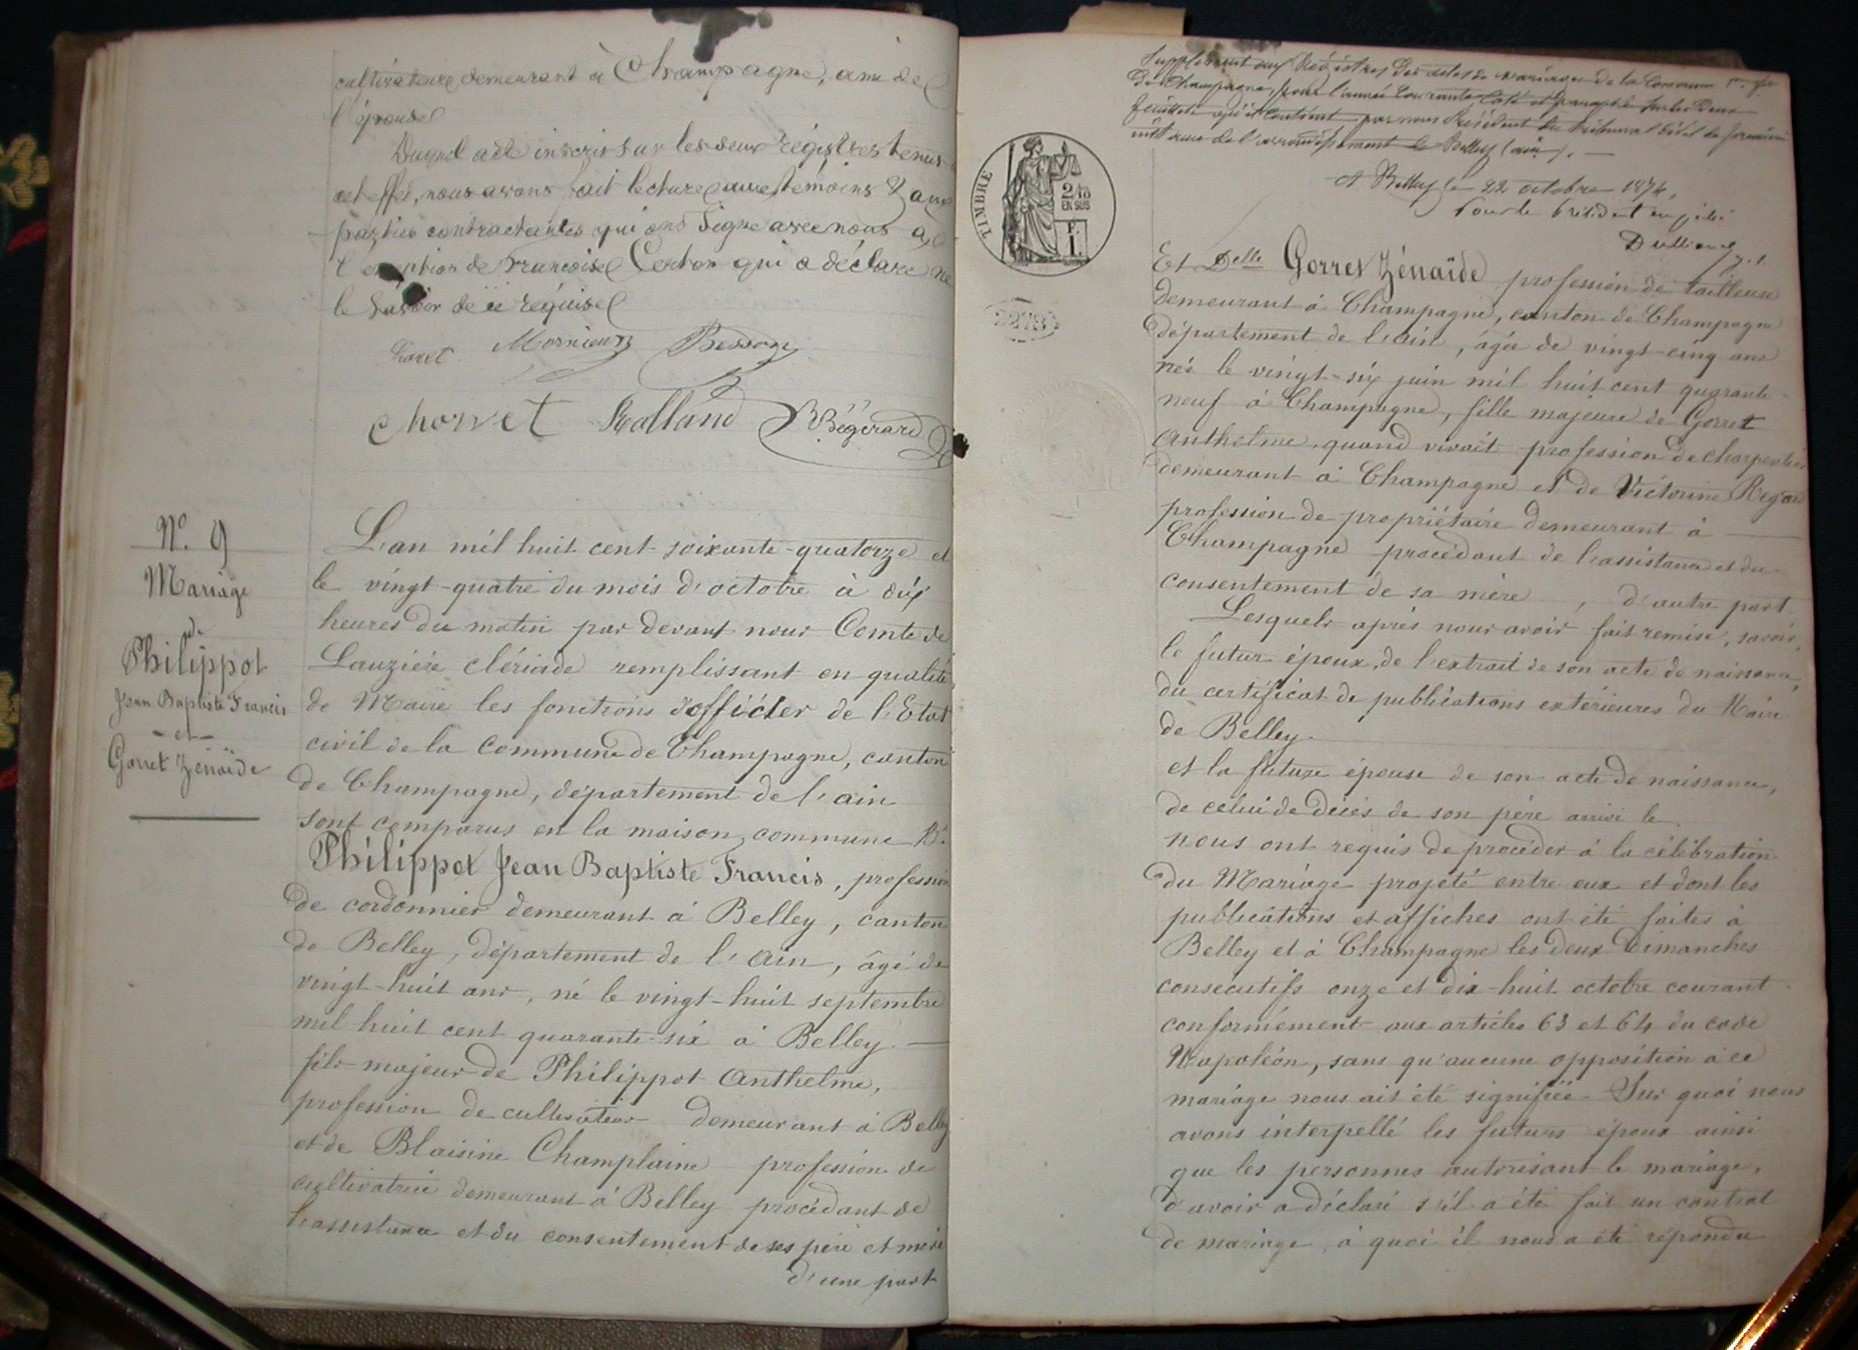 cultivateur demeurant à Champagne, ami de
l'épouse
Duquel acte inscris sur les deux régistres tenus
cet effet, nous avons fait lecture aux témoins & aux
parties contractantes qui ont signé avec nous a
l'exception de Françoise qui a déclaré ne
le savoir de ce réquise
Mornieux Besson
Chorvet Rolland Bégérard
N.º 9
Mariage
de
Philippot
Jean Baptiste Francis
- et -
Gorret Zénaïde
L'an mil huit cent soixante-quatorze et
le vingt-quatre du mois d'octobre à dix
heures du matin par devant nous Comte de
Lauzière clériade remplissant en qualité
de Maire les fonctions d'officier de l'Etat
civil de la Commune de Champagne, canton
de Champagne, département de l'ain
sont comparus en la maison commune Mr.
Philippot Jean Baptiste Francis, profession
de cordonnier demeurant à Belley, canton
de Belley, département de l'Ain, âgé de
vingt-huit ans, né le vingt-huit septembre
mil huit cent quarante-six à Belley. —
fils majeur de Philippot Anthelme,
profession de cultivateur demeurant à Belley
et de Blaisine Champlaine profession de
cultivatrice demeurant à Belley procédant de
l'assistance et du consentement de ses père et mère
d'une part
Supplément aux Régistres des actes de mariages de la Commune
de Champagne, pour l'année courante, coté et paraphé sur les deux
feuillets qu'il contient par nous Président du tribunal civil de première
instance de l'arrondissement de Belley (ain). —
A Belley le 22 octobre 1874,
Pour le Président
TIMBRE
2/10
EN SUS
F.
1.
Et Delle Gorret Zénaïde profession de tailleuse
demeurant à Champagne, canton de Champagne
département de l'ain, âgée de vingt-cinq ans
née le vingt-six juin mil huit cent quarante-
neuf à Champagne, fille majeure de Gorret
Anthelme, quand vivait profession de charpentier
demeurant à Champagne et de Victorine
profession de propriétaire demeurant à —
Champagne procédant de l'assistance et du
consentement de sa mère, d'autre part.
Lesquels après nous avoir fait remise, savoir,
le futur époux, de l'extrait de son acte de naissance,
du certificat de publications extérieures du Maire
de Belley.
et la future épouse de son acte de naissance,
de celui de décès de son père arrivé le
nous ont requis de procéder à la célébration
du Mariage projeté entre eux et dont les
publications et affiches ont été faites à
Belley et à Champagne les deux Dimanches
consécutifs onze et dix-huit octobre courant.
conformément aux articles 63 et 64 du code
Napoléon, sans qu'aucune opposition à ce
mariage nous ait été signifiée. Sur quoi nous
avons interpellé les futurs époux ainsi
que les personnes autorisant le mariage,
d'avoir a déclaré s'il a été fait un contrat
de mariage, à quoi il nous a été répondu